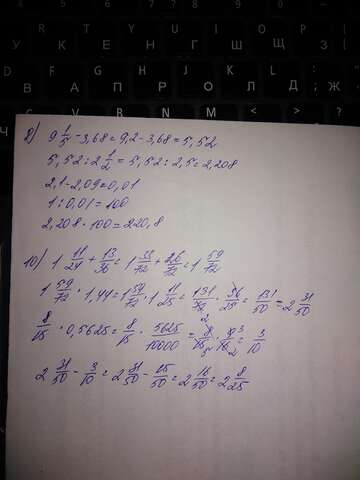 У К Е Н Г Ш Щ З
Ф Ы В А П Р О Л Д Ж
8) 9 1/5 - 3,68 = 9,2 - 3,68 = 5,52
5,52 : 2 1/2 = 5,52 : 2,5 = 2,208
2,1 - 2,09 = 0,01
1 : 0,01 = 100
2,208 · 100 = 220,8
10) 1 11/24 + 13/36 = 1 33/72 + 26/72 = 1 59/72
1 59/72 · 1,44 = 1 59/72 · 1 11/25 = 131/72 · 36/25 = 131/50 = 2 31/50
8/15 · 0,5625 = 8/15 · 5625/10000 = 8/15 · 9/16 = 3/10
2 31/50 - 3/10 = 2 31/50 - 15/50 = 2 16/50 = 2 8/25